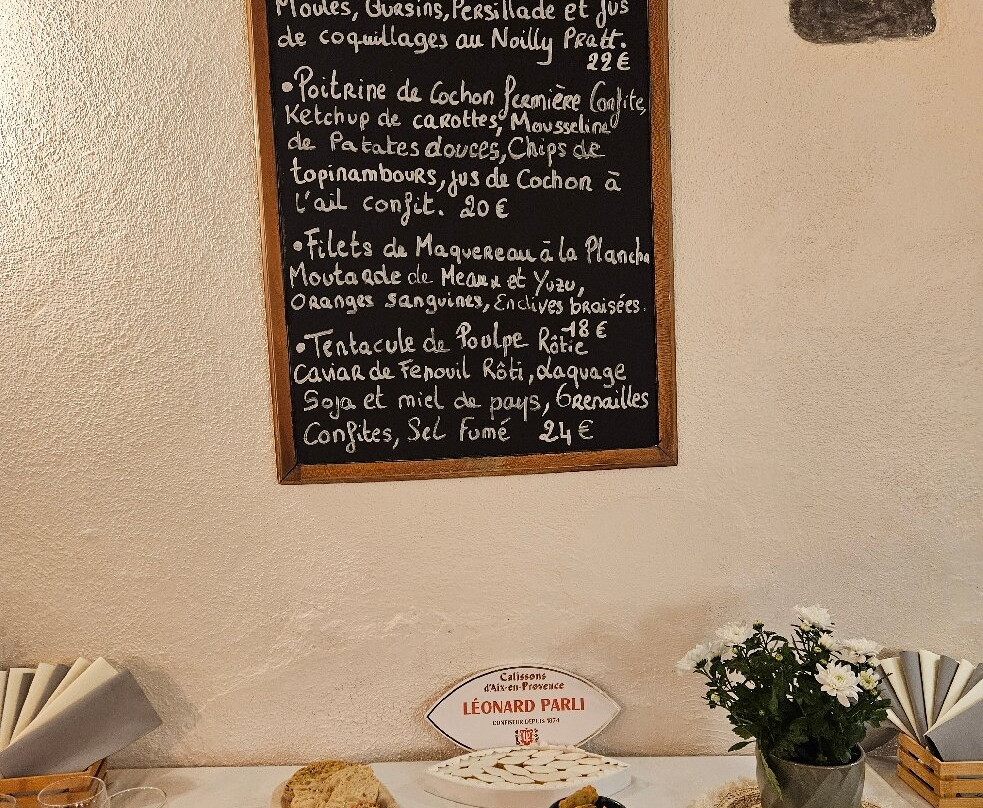 Moules, Oursins, Persillade et jus
de coquillages au Noilly Pratt.
22 €
•Poitrine de Cochon fermière Confite,
Ketchup de carottes, Mousseline
de Patates douces, Chips de
topinambours, jus de Cochon à
l'ail confit. 20 €
•Filets de Maquereau à la Plancha
Moutarde de Meaux et Yuzu,
Oranges sanguines, Endives braisées.
18 €
•Tentacule de Poulpe Rôtie
Caviar de Fenouil Rôti, Laquage
Soja et miel de pays, Grenailles
Confites, Sel Fumé 24 €
Calissons
d'Aix-en-Provence
LÉONARD PARLI
CONFISEUR DEPUIS 1874